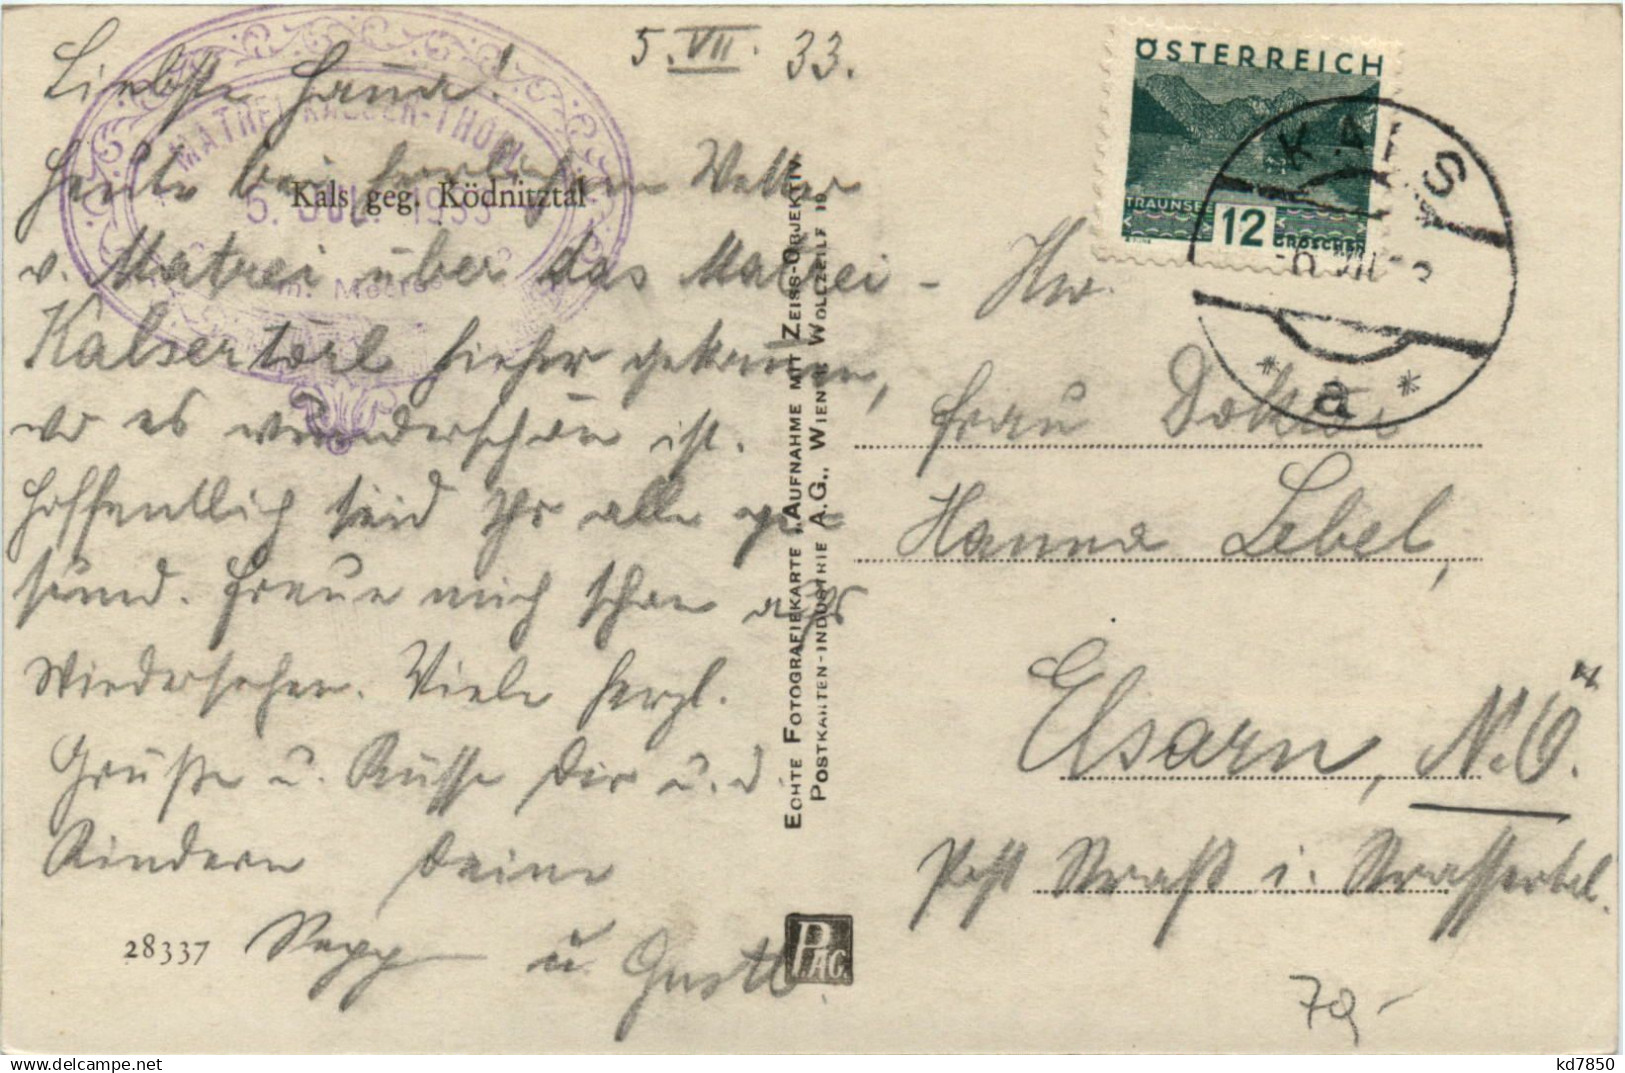 5. VII. 33.
Liebste Hanna!
Heute bei herrlichem Wetter
v. Matrei über das Matrei-
Kalsertörl hieher gekommen,
wo es wunderschön ist.
Hoffentlich seid Ihr alle ge-
sund. Freue mich schon aufs
Wiedersehen. Viele herzl.
Grüße u. Küsse Dir u. d.
Kindern Deine
Sepp u. Gustl.
MATREI-KALSER-THÖRL
5. JUL. 1933
m. Meeres
Kals geg. Ködnitztal
28337
ECHTE FOTOGRAFIEKARTE, AUFNAHME MIT ZEISS-OBJEKTIV
POSTKARTEN-INDUSTRIE A.G., WIEN WOLLZEILE 19
P.AG.
ÖSTERREICH
TRAUNSEE
12
GROSCHEN
KALS
VII
* a *
Hw.
Frau Doktor
Hanna Lebel,
Elsarn, N.Ö.
Post Straß i. Strassertal.
70,-
kd7850